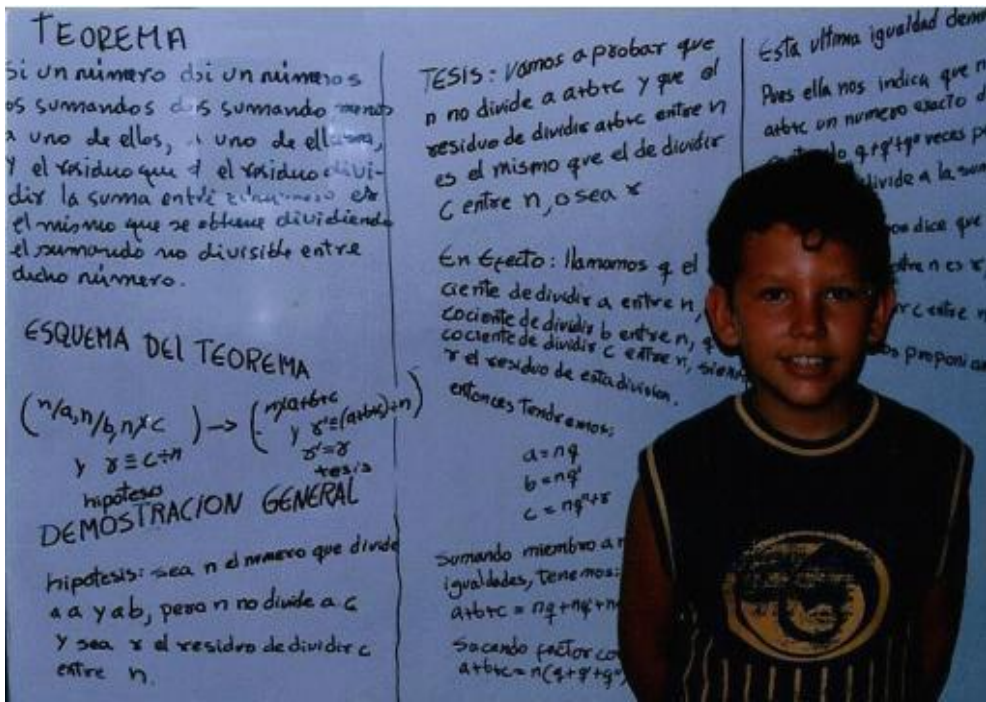 TEOREMA
Si un número dsi un números
os sumandos dos sumando menos
a uno de ellos, a uno de ellos,
y el residuo que d el residuo divi-
dir la suma entre el número es
el mismo que se obtiene dividiendo
el sumando no divisible entre
dicho número.
ESQUEMA DEL TEOREMA
(n/a, n/b, n∤c) → (n∤a+b+c
y r≡c÷n y r'≡(a+b+c)÷n)
r'=r
hipótesis tesis
DEMOSTRACION GENERAL
hipotesis: sea n el numero que divide
a a y a b, pero n no divide a c
y sea r el residuo de dividir c
entre n.
TESIS: Vamos a probar que
n no divide a a+b+c y que el
residuo de dividir a+b+c entre n
es el mismo que el de dividir
c entre n, o sea r
En Efecto: llamamos q el
ciente de dividir a entre n,
cociente de dividir b entre n, q
cociente de dividir c entre n, sien
r el residuo de esta division.
entonces Tendremos:
a=nq
b=nq'
c=nq"+r
Sumando miembro a m
igualdades, tenemos:
a+b+c = nq+nq'+n
Sacando factor co
a+b+c=n(q+q'+q")
Esta ultima igualdad dem
Pues ella nos indica que n
a+b+c un numero exacto d
q+q'+q" veces p
divide a la sum
nos dice que
entre n es r,
r c entre n
os proponiam